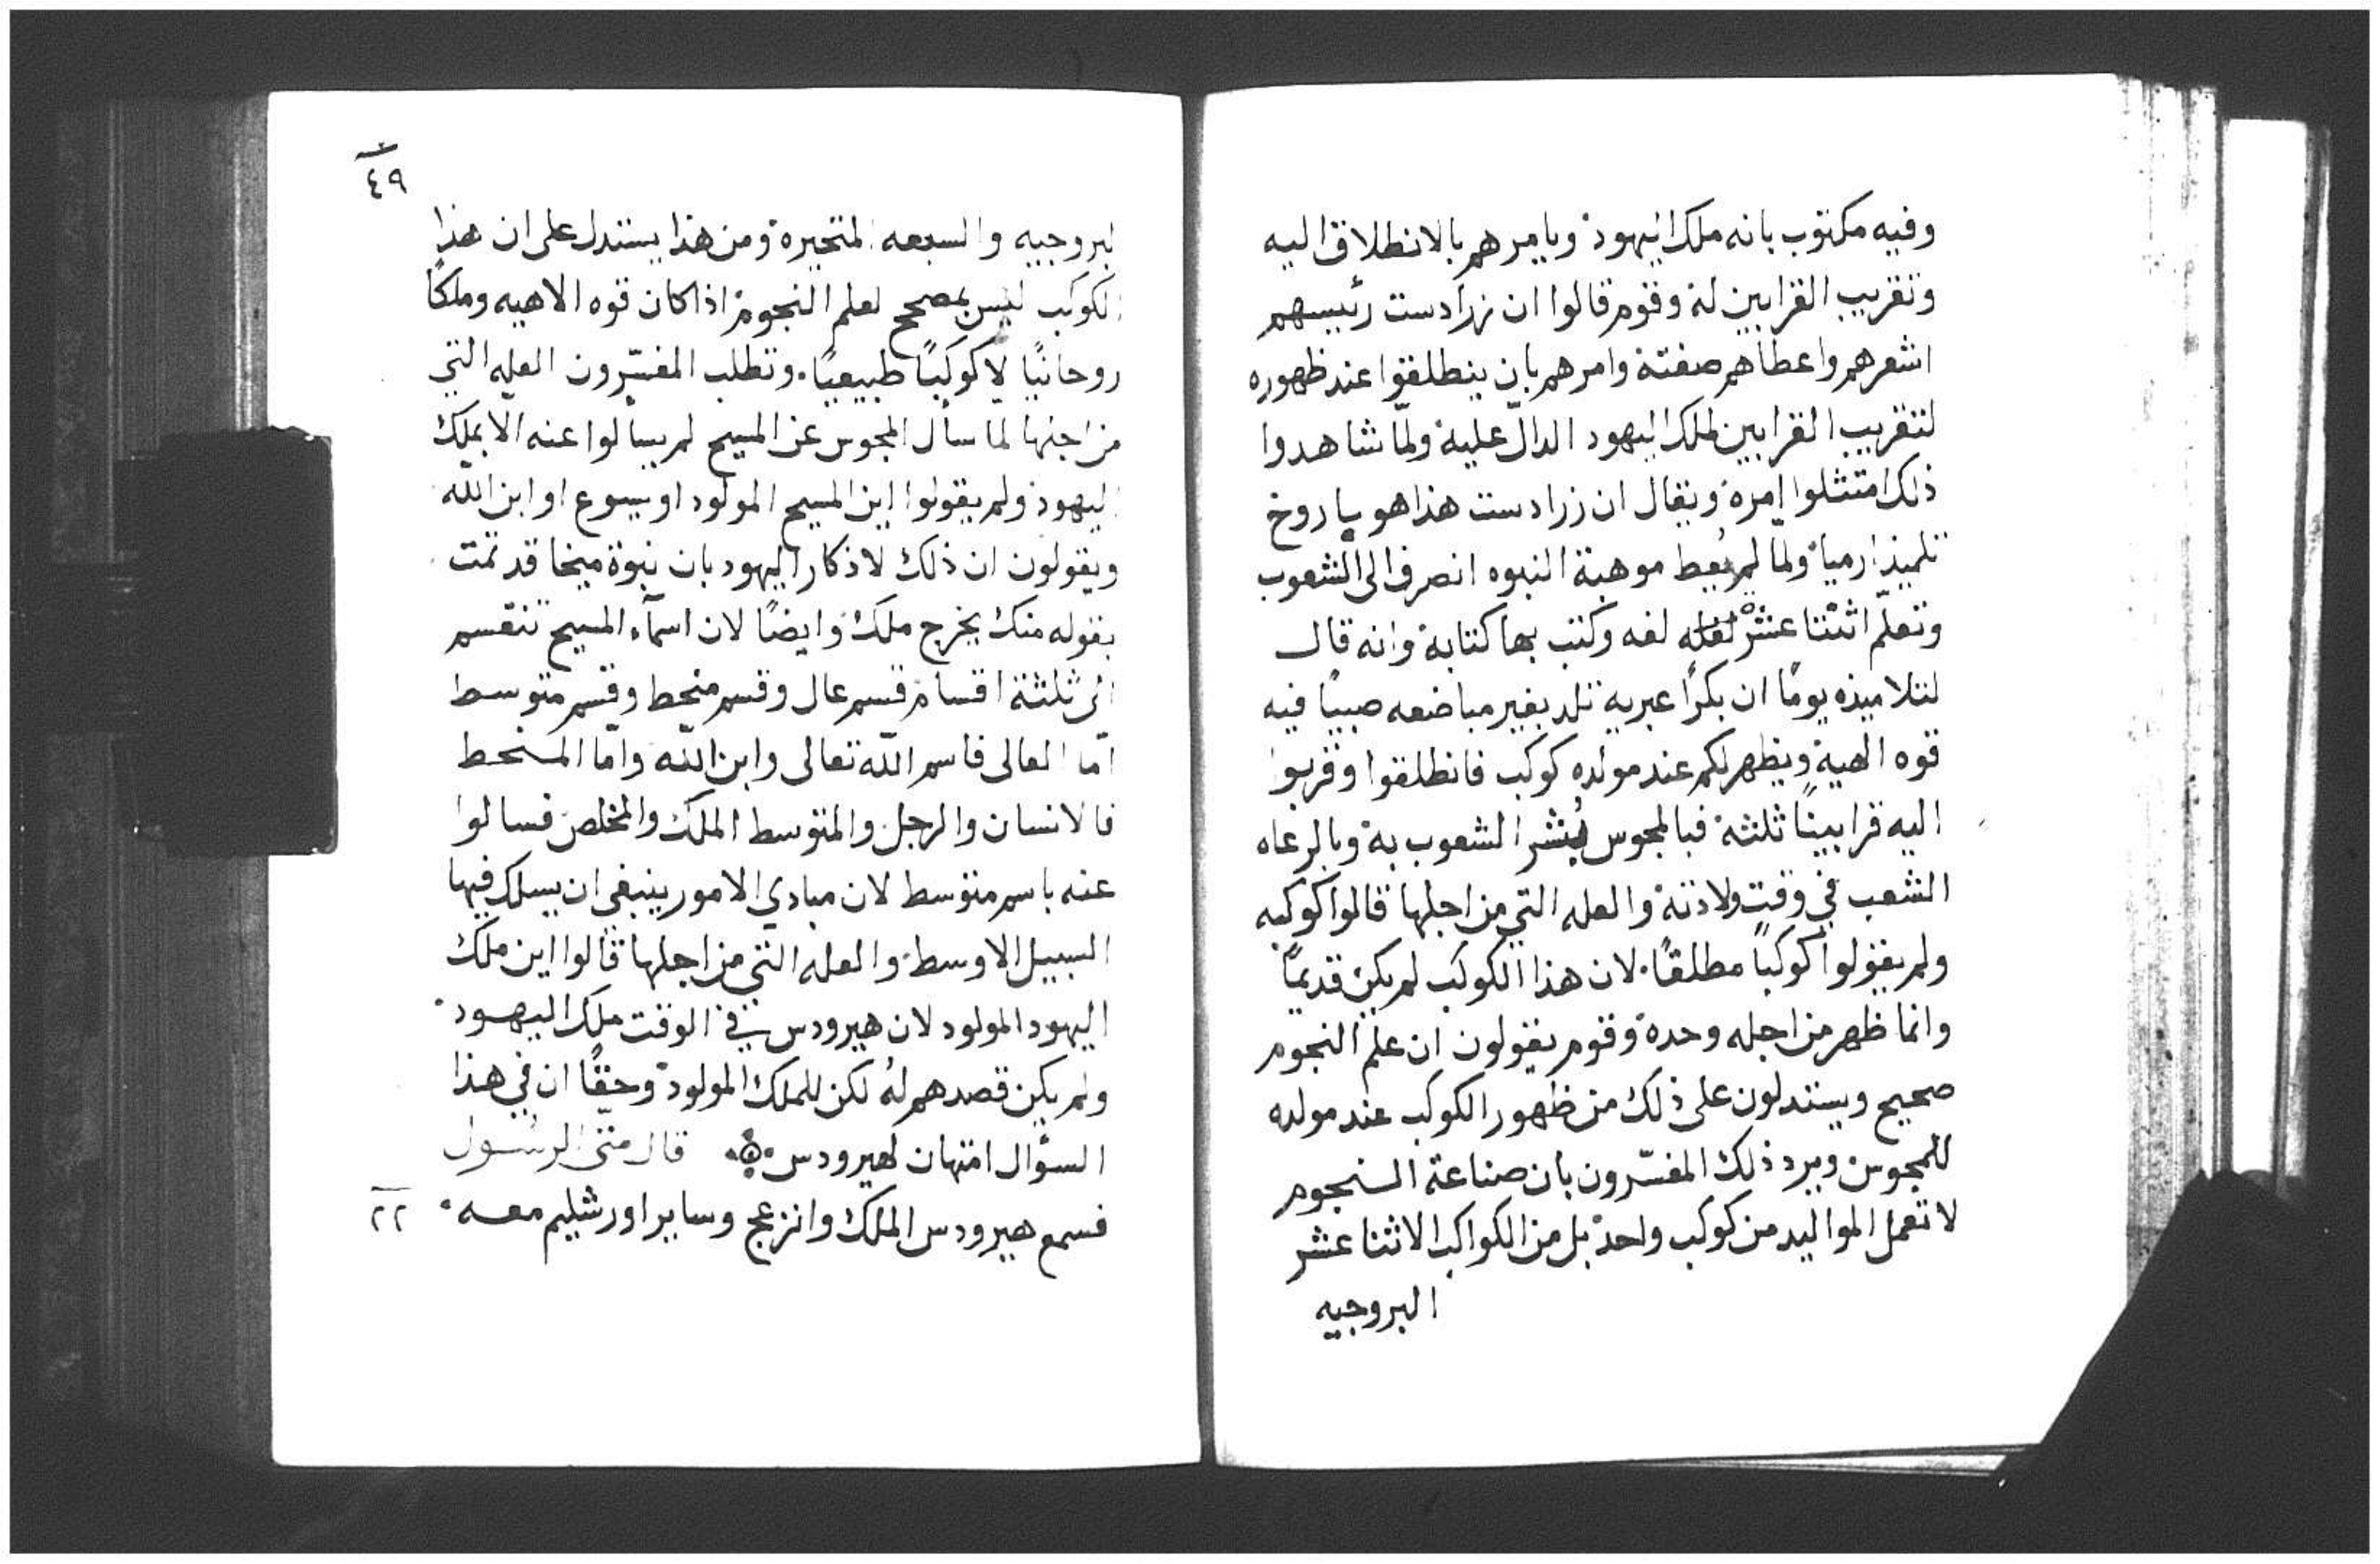 وفيه مكتوب بانه ملك اليهود ويامرهم بالانطلاق اليه
وتقريب القرابين له وقوم قالوا ان زرادست رئيسهم
اشعرهم واعطاهم صفته وامرهم بان ينطلقوا عند ظهوره
لتقريب القرابين لملك اليهود الدالّ عليه ولمّا شاهدوا
ذلك امتثلوا امره ويقال ان زرادست هذا هو باروخ
تلميذ ارميا ولما لم يُعط موهبة النبوه انصرف الى الشعوب
وتعلّم اثنتا عشر لغه وكتب بها كتابة وانه قال
لتلاميذه يومًا ان بكرًا عبريه تلد بغير مباضعه صبيًا فيه
قوه الهية ويظهر لكم عند مولده كوكب فانطلقوا وقربوا
اليه قرابينًا ثلثة فبالمجوس بُشر الشعوب به وبالرعاه
الشعب في وقت ولادته والعله التي من اجلها قالوا كوكبه
ولم يقولوا كوكبًا مطلقًا لان هذا الكوكب لم يكن قديمًا
وانما ظهر من اجله وحده وقوم يقولون ان علم النجوم
صحيح ويستدلون على ذلك من ظهور الكوكب عند مولده
للمجوس ويرد ذلك المفسّرون بان صناعة النجوم
لا تعمل المواليد من كوكب واحد بل من الكواكب الاثنتا عشر
البروجيه
٤٩
البروجيه والسبعه المتحيره ومن هذا يستدل على ان هذا
الكوكب ليس بمصحح لعلم النجوم اذا كان قوه الاهيه وملكًا
روحانيًا لا كوكبًا طبيعيًا. وتطلب المفسّرون العله التي
من اجلها لما سأل المجوس عن المسيح لم يسألوا عنه الا بملك
اليهود ولم يقولوا اين المسيح المولود او يسوع او ابن الله
ويقولون ان ذلك لاذكار اليهود بان نبوة ميخا قد تمت
بقوله منك يخرج ملك وايضًا لان اسمآء المسيح تنقسم
الى ثلثة اقسام قسم عال وقسم منحط وقسم متوسط
امّا العالى فاسم اللّه تعالى وابن اللّه وامّا المنحط
فالانسان والرجل والمتوسط الملك والمخلص فسالوا
عنه باسم متوسط لان مبادي الامور ينبغي ان يسلك فيها
السبيل الاوسط والعله التي من اجلها قالوا اين ملك
اليهود المولود لان هيرودس في الوقت ملك اليهود
ولم يكن قصدهم له لكن للملك المولود وحقًا ان في هذا
السؤال امتهان لهيرودس قال متى الرسول
فسمع هيرودس الملك وانزعج وساير اورشليم معه
٢٢